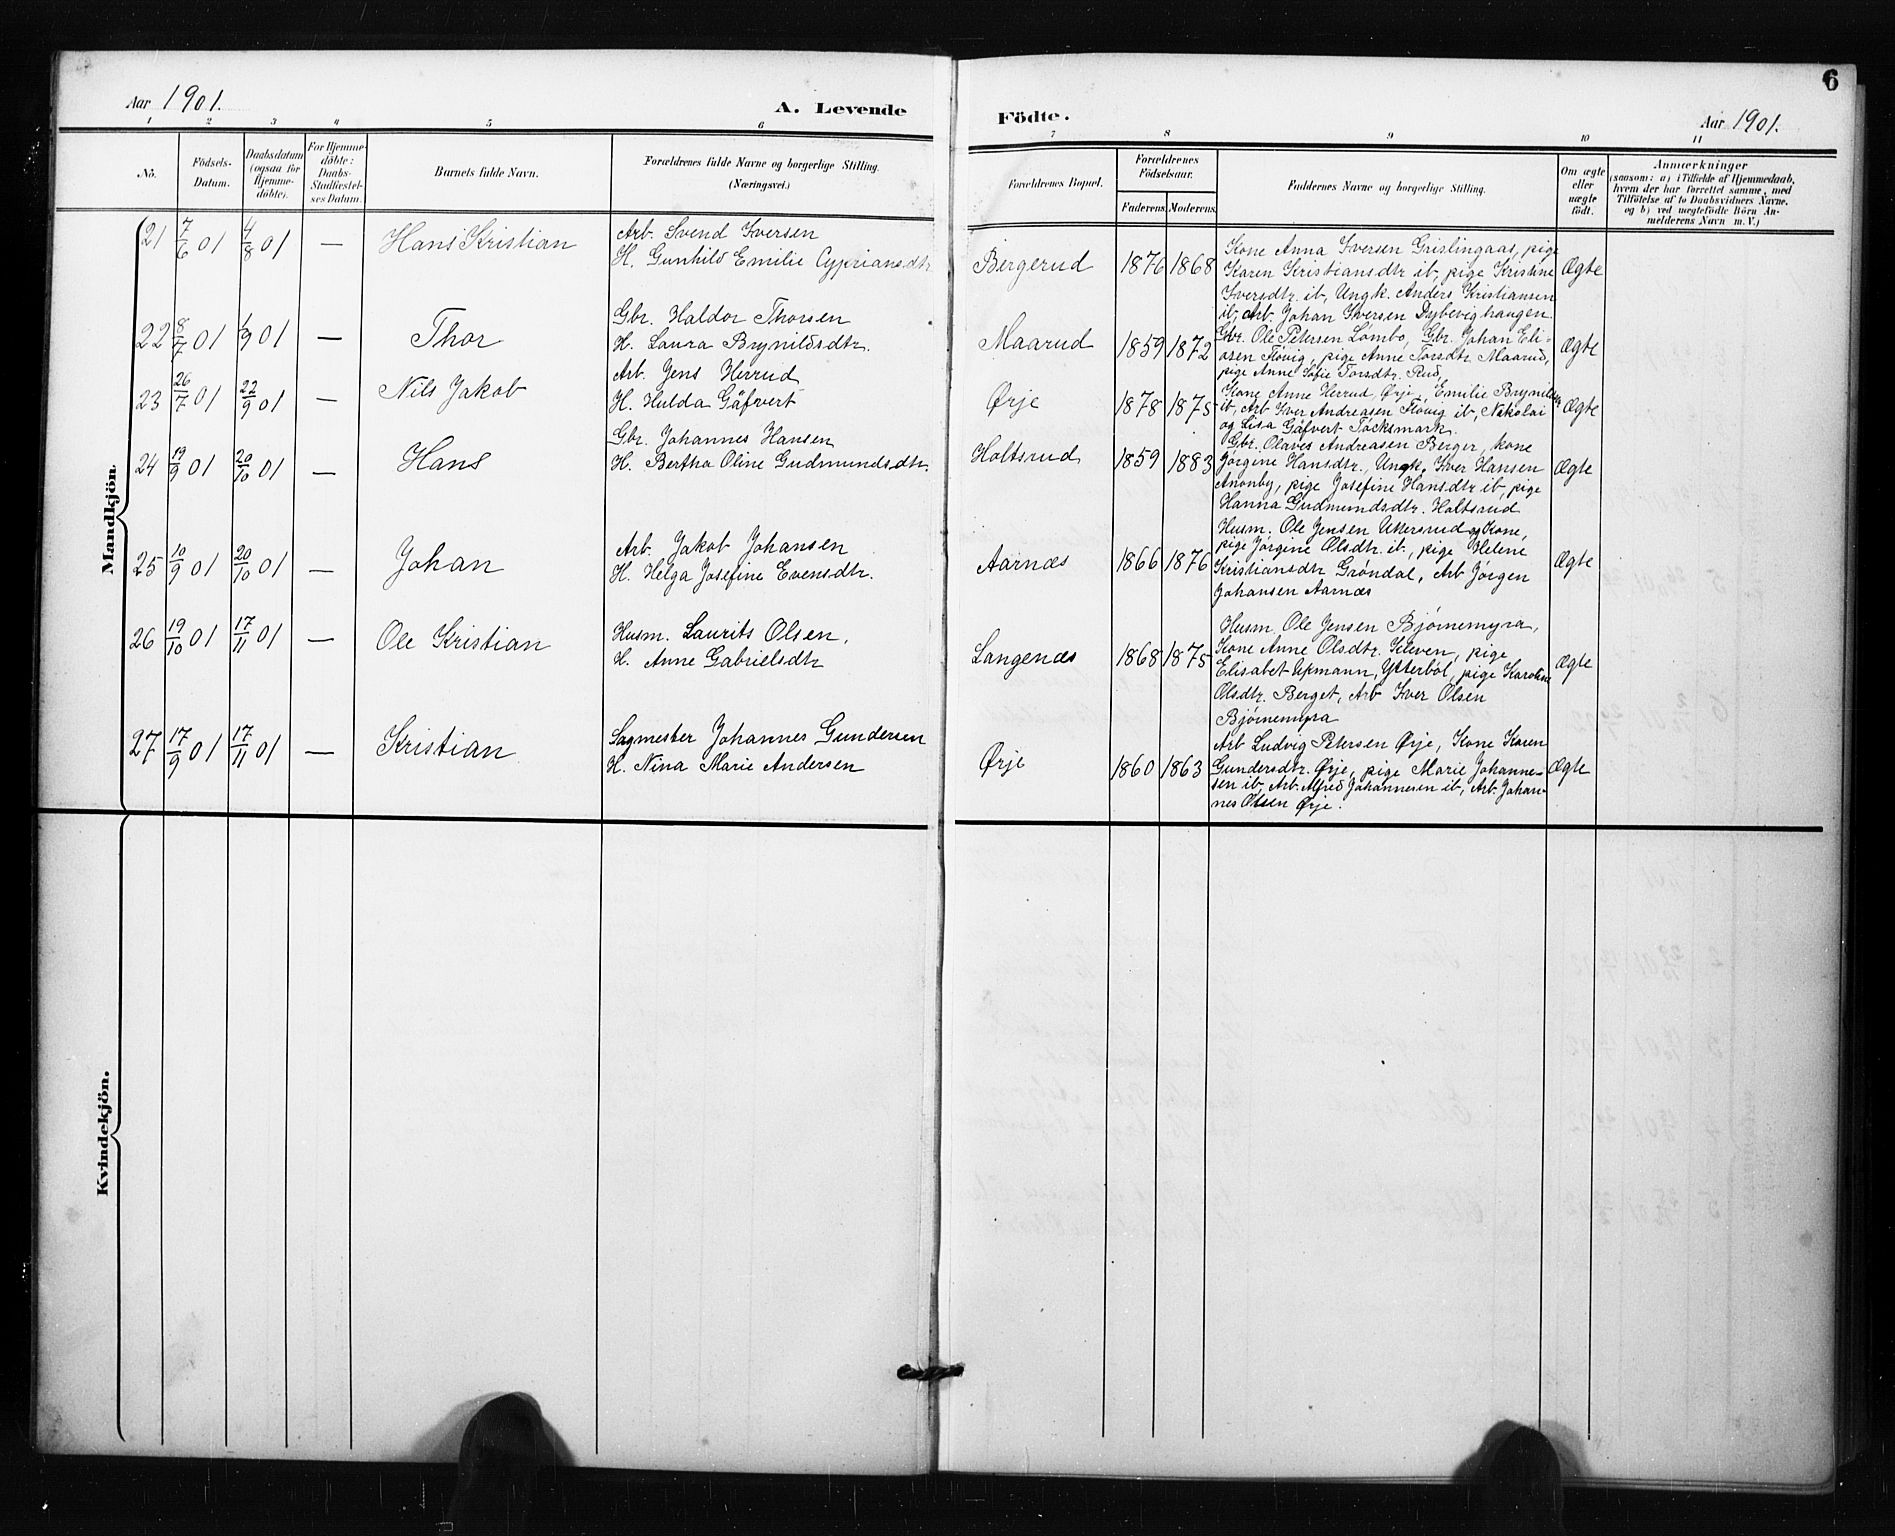 6
Aar 1901.
A. Levende
Födte.
Aar 1901.
1 2 3 4 5 6 7 8 9 10 11
No.
Födsels-
Datum.
Daabsdatum
(ogsaa for
Hjemme-
döbte).
For Hjemme-
döbte:
Daabs-
Stadfæstel-
ses Datum.
Barnets fulde Navn.
Forældrenes fulde Navne og borgerlige Stilling
(Næringsvei.)
Forældrenes Bopæl.
Forældrenes
Födselsaar.
Faderens.
Moderens.
Faddernes Navne og borgerlige Stilling.
Om ægte
eller
uægte
födt.
Anmærkninger
(saasom: a) i Tilfælde af Hjemmedaab,
hvem der har forrettet samme, med
Tilföielse af to Daabsvidners Navne,
og b) ved uægtefödte Börn An-
melderens Navn m. V.)
Mandkjön
21 7/6 01 4/8 01 — Hans Kristian
Arb. Svend Iversen
H. Gunhild Emilie Cypriansdtr
Bergerud 1876 1868
Kone Anna Iversen Grislingaas, pige
Karen Kristiansdtr ib, pige Kristine
Iversdtr. ib, Ungk. Anders Kristiansen
ib, Arb. Johan Iversen Dybevighaugen
Ægte
22 8/7 01 1/9 01 — Thor
Gbr. Haldor Thorsen
H. Laura Brynildsdtr.
Maarud 1859 1872
Gbr. Ole Petersen Lømbo, Gbr. Johan Eli-
asen Fløvig, pige Anne Torsdtr. Maarud,
pige Anne Sofie Torsdtr. Rud,
Ægte
23 26/7 01 22/9 01 — Nils Jakob
Arb. Jens Herrud
H. Hulda Gäfvert
Ørje 1878 1875
Kone Anne Herrud, Ørje, Emilie Brynildsen
ib, Arb Iver Andreasen Fløvig ib, Nikolai
og Lisa Gäfvert Töcksmark.
Ægte
24 19/9 01 20/10 01 — Hans
Gbr. Johannes Hansen
H. Bertha Oline Gudmundsdtr.
Holtsrud 1859 1883
Gbr. Olaves Andreasen Berger, kone
Jørgine Hansdtr., Ungk. Iver Hansen
Anonby, pige Josefine Hansdtr ib, pige
Hanna Gudmundsdtr. Holtsrud
Ægte
25 10/9 01 20/10 01 — Johan
Arb. Jakob Johansen
H. Helga Josefine Evensdtr.
Aarnæs 1866 1876
Husm. Ole Jensen Ukersrud og Kone,
pige Jørgine Olsdtr. ib., pige Helene
Kristiansdtr Grøndal, Arb Jørgen
Johansen Aarnæs
Ægte
26 19/10 01 17/11 01 — Ole Kristian
Husm. Laurits Olsen,
H. Anne Gabrielsdtr
Langenæs 1868 1875
Husm. Ole Jensen Bjørnemyra,
Kone Anne Olsdtr. Kleven, pige
Elisabet Axmann, Ytterböl, pige Karoline
Olsdtr. Berget, Arb Iver Olsen
Bjørnemyra
Ægte
27 17/9 01 17/11 01 — Kristian
Sagmester Johannes Gundersen
H. Nina Marie Andersen
Ørje 1860 1863
Arb Ludvig Petersen Ørje, Kone Karen
Gundersdtr. Ørje, pige Marie Johanne-
sen ib, Arb. Alfred Johannesen ib, Arb. Johan-
nes Olsen Ørje.
Ægte
Kvindekjön.